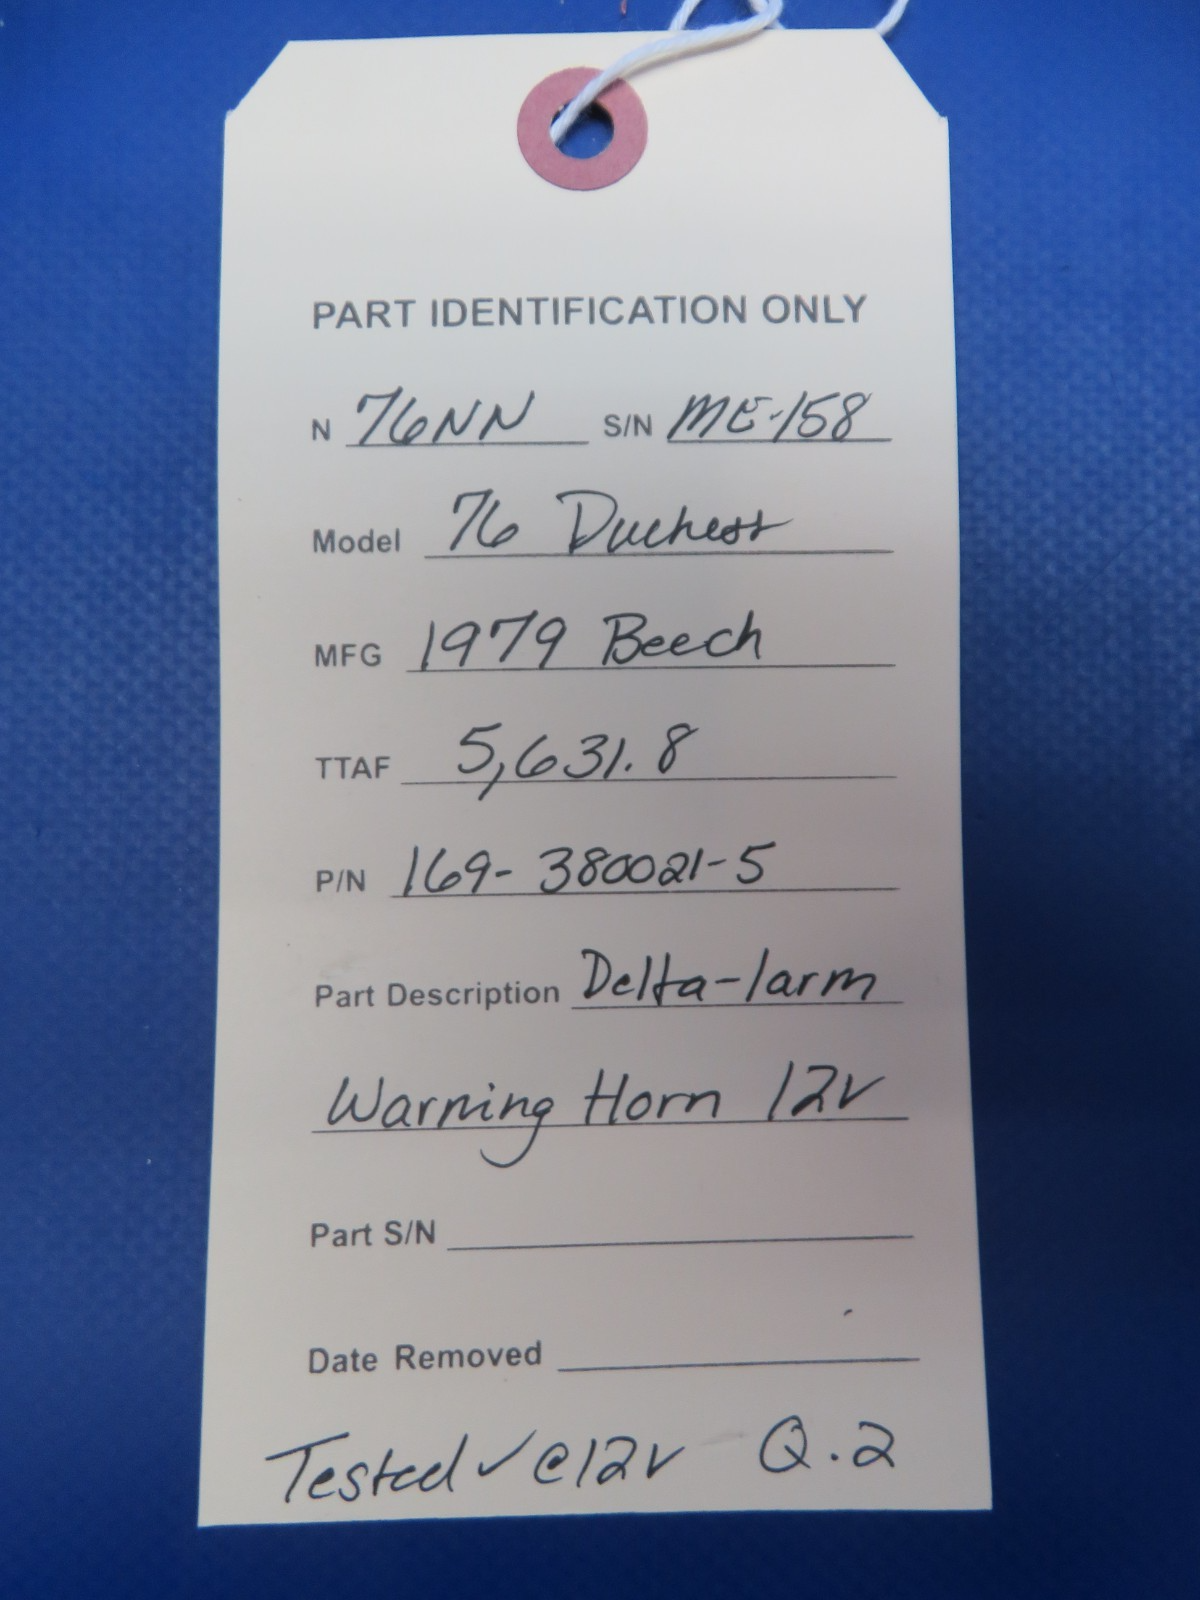 PART IDENTIFICATION ONLY
N 76NN S/N ME-158
Model 76 Duchess
MFG 1979 Beech
TTAF 5,631.8
P/N 169-380021-5
Part Description Delta-larm
Warning Horn 12v
Part S/N
Date Removed
Tested ✓ @12v Q.2